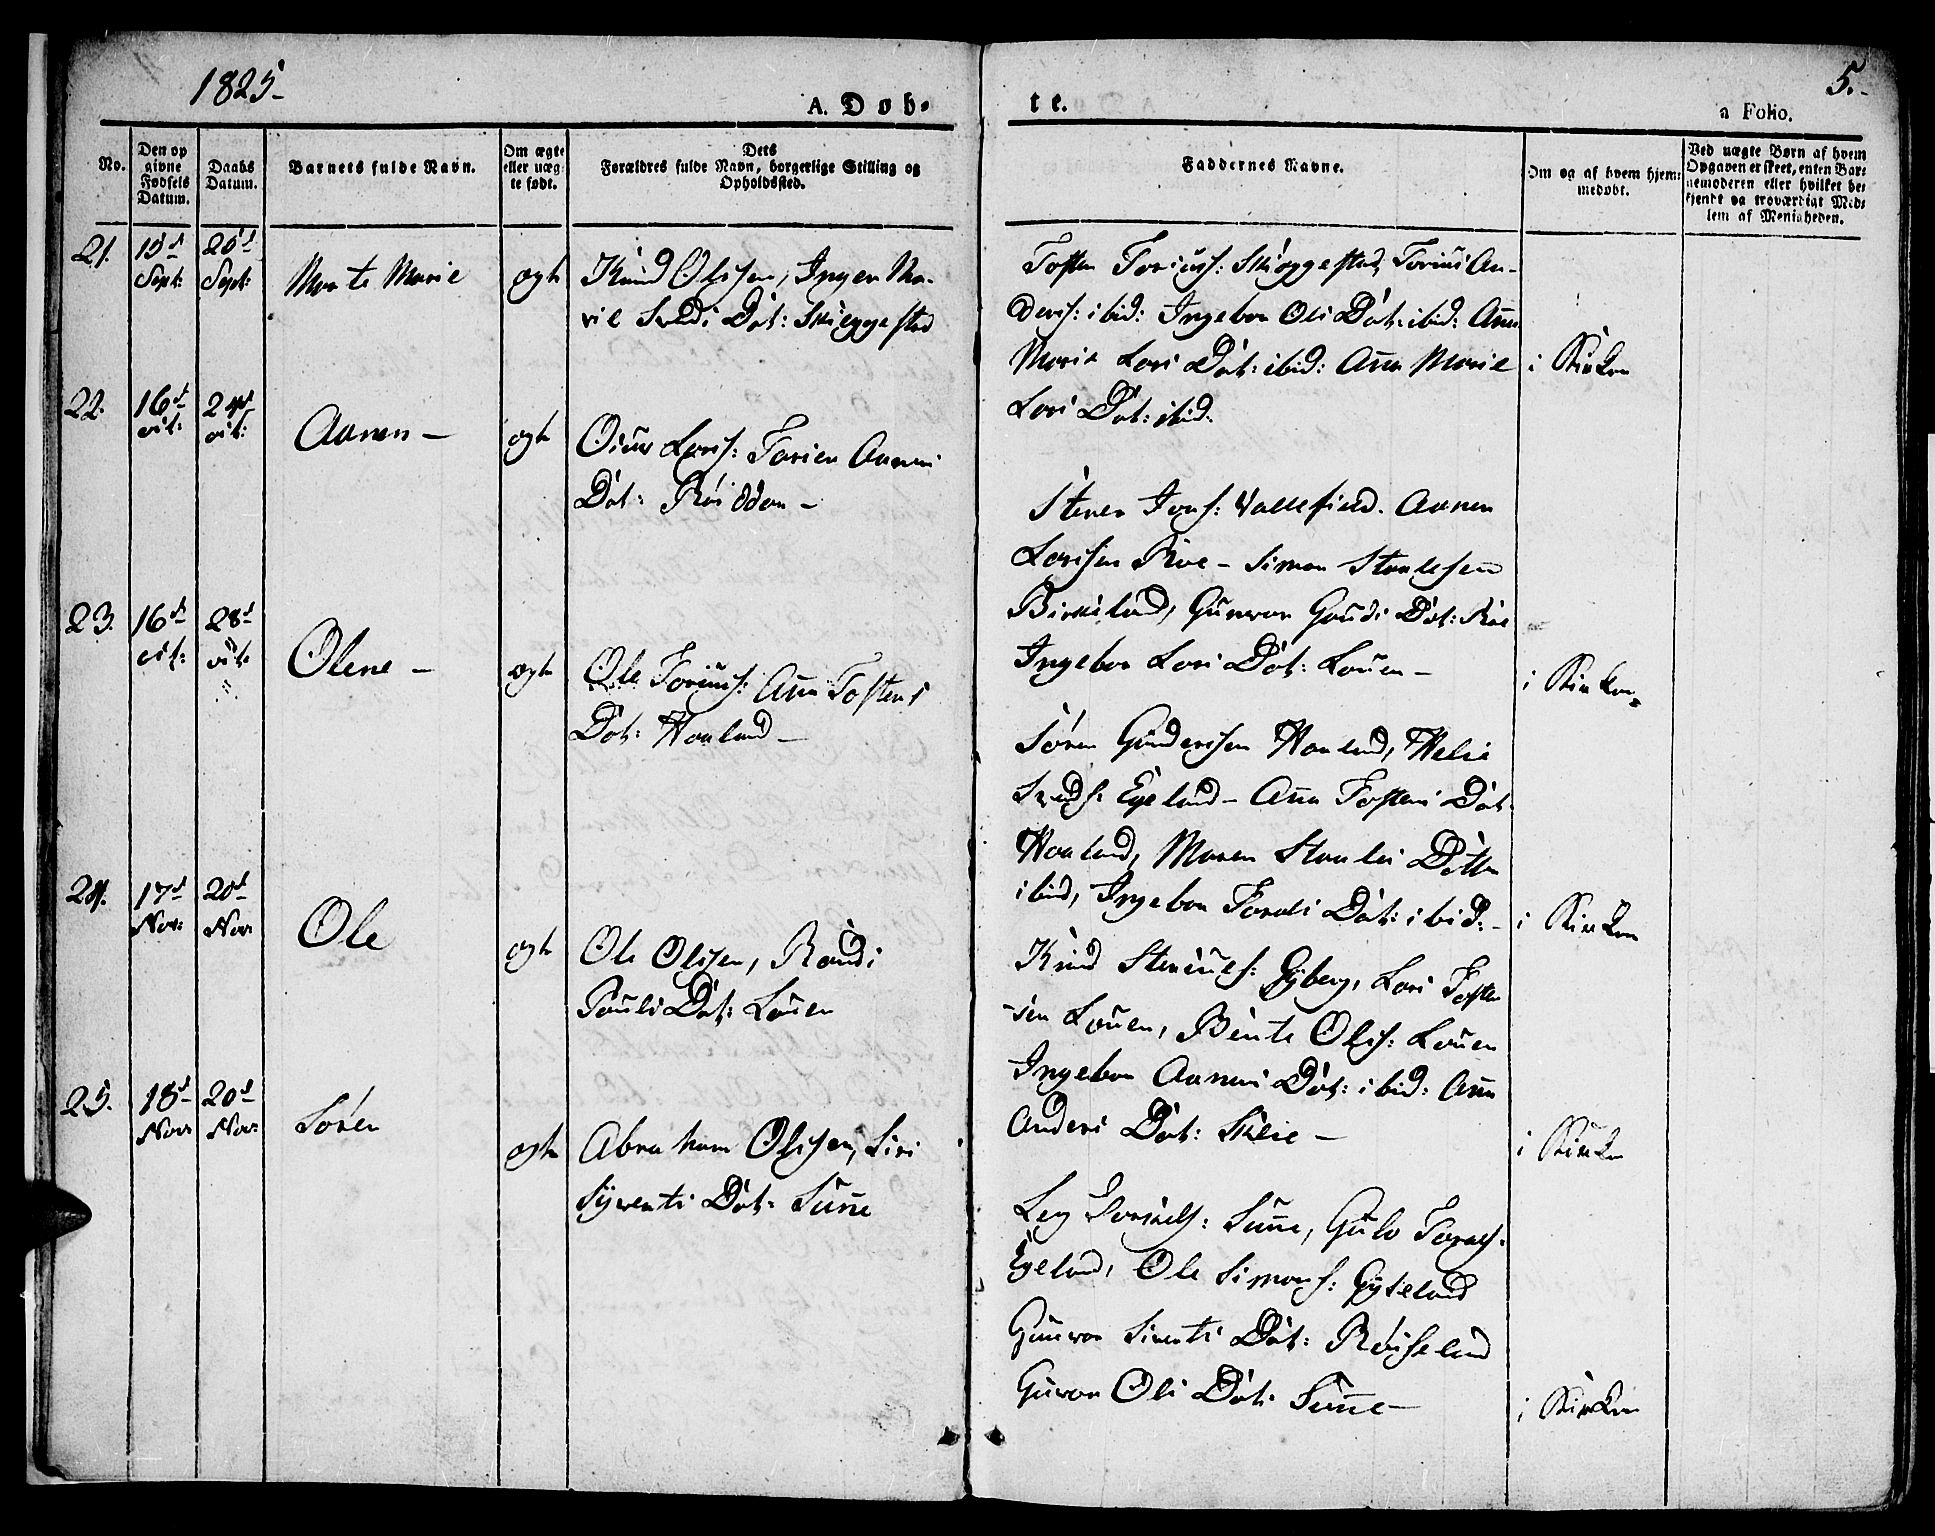 1825-
A. Døb-
te.
5.-
a Folio.
No.
Den op
givne
Fødsels
Datum.
Daabs
Datum.
Barnets fulde Navn.
Om ægte
eller uæg-
te født.
Dets
Forældres fulde Navn, borgerlige Stilling og
Opholdssted.
Faddernes Navne.
Om og af hvem hjem-
medøbt.
Ved uægte Børn af hvem
Opgaven er skeet, enten Bar-
nemoderen eller hvilket be-
kjendt og troværdigt Med-
lem af Menigheden.
21.
15d
Sept:
25d
Sept:
Marte Marie
ægte
Knud Olisen, Inger Ma-
rie Svedi Dat: Skieggestad
Tosten Torius: Skioggestad, Torius An-
ders: ibid: Ingebor Oli Dat: ibid: Anne
Marie Lari Dat: ibid: Ann Marie
Lari Dat: ibid:
i Kirken
22.
16d
24d
Aanen -
ægte
Lars: Torien Aaneni
Dat:
Stener Jons: Vallefield. Aanen
Larisen Røe - Simon Staalesen
Birkeland, Gunvor Gaudi Dat: Røe
Ingebor Lari Dat: Lauen -
i Kirken
23.
16d
28d
Olene -
ægte
Ole Torius: Ann Tosteni
Dat: Haaland -
Søren Gunderisen Haaland, Helie
Egeland - Ann Tosteni Dat:
Haaland, Maren Staalei Datter
ibid, Ingebor Torali Dat: ibid: -
i Kirken
24.
17d
Nov:
20d
Nov:
Ole
ægte
Ole Olisen, Randi
Pauli Dat: Lauen
Knud Gyberg, Lars Tosten
-sen Lauen, Bente Olis: Lauen
Ingebor Aaneni Dat: ibid: Ann
Anderi Dat: Sklie -
i Kirken
25.
18d
Nov:
20d
Nov:
Søren
ægte
Abraham Olisen, Siri
Syventi Dat: Sunne
Sunne, Gulv Torals:
Egeland, Ole Simons: Gyseland
Gunvor Siventi Dat: Røiseland
Guvor Oli Dat: Sunne -
i Kirken